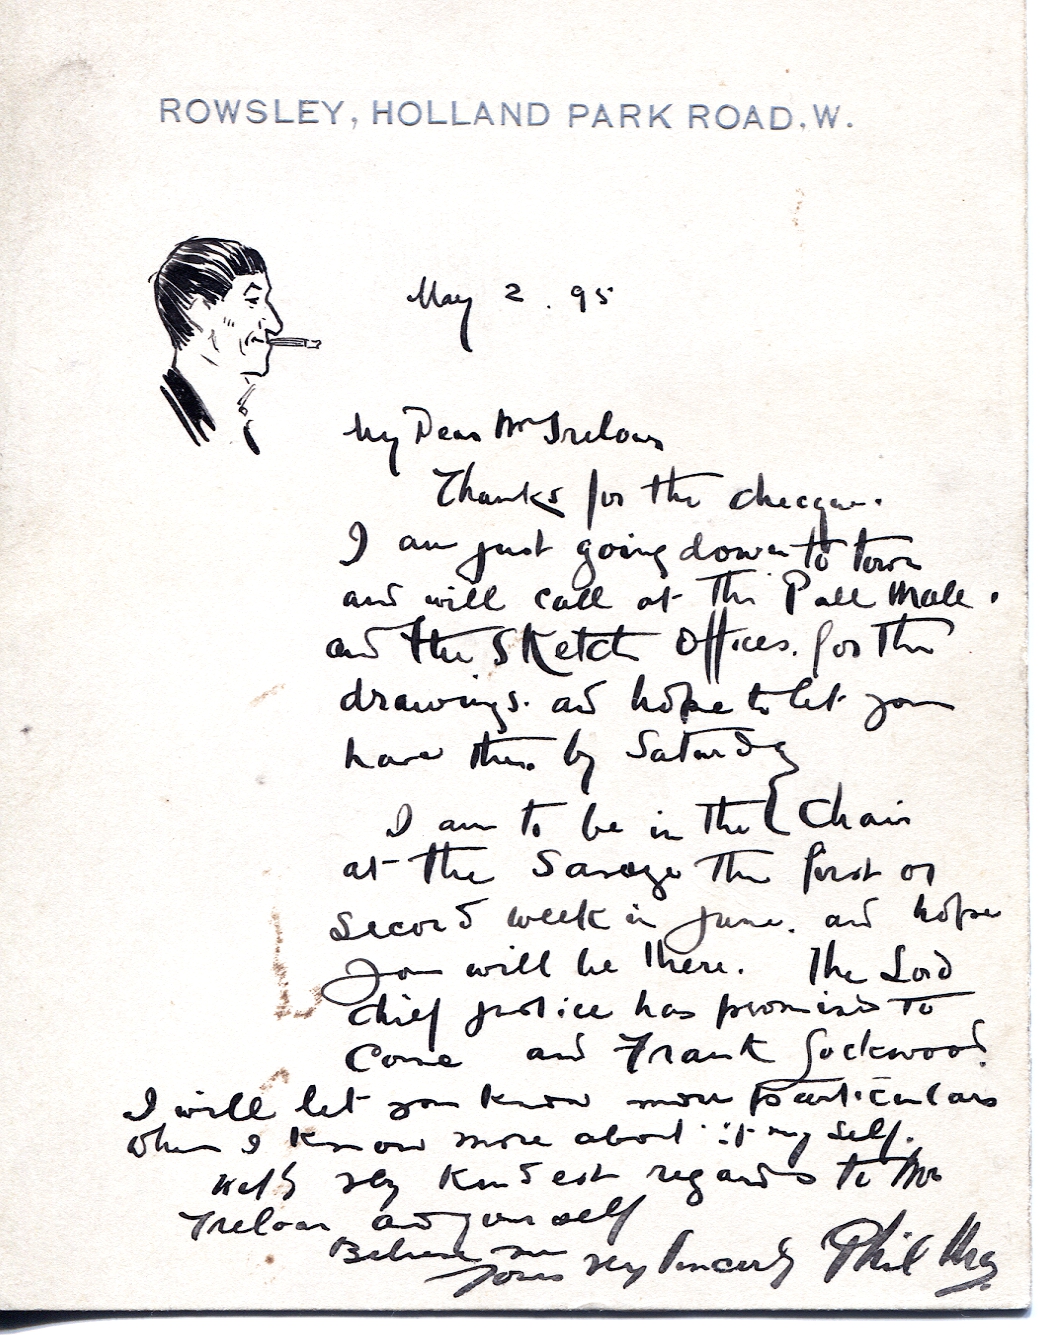 ROWSLEY, HOLLAND PARK ROAD, W.
May 2. 95
My Dear Mr Treloar
Thanks for the checque.
I am just going down to town
and will call at the Pall Mall.
and the Sketch Offices. for the
drawings. and hope to let you
have them by Saturday
I am to be in the Chair
at the Savage the first or
second week in June. and hope
you will be there. The Lord
Chief Justice has promised to
Come and Frank Lockwood.
I will let you know more particulars
when I know more about it myself.
With very kindest regards to Mrs
Treloar and yourself
Believe me
Yours very sincerely Phil May